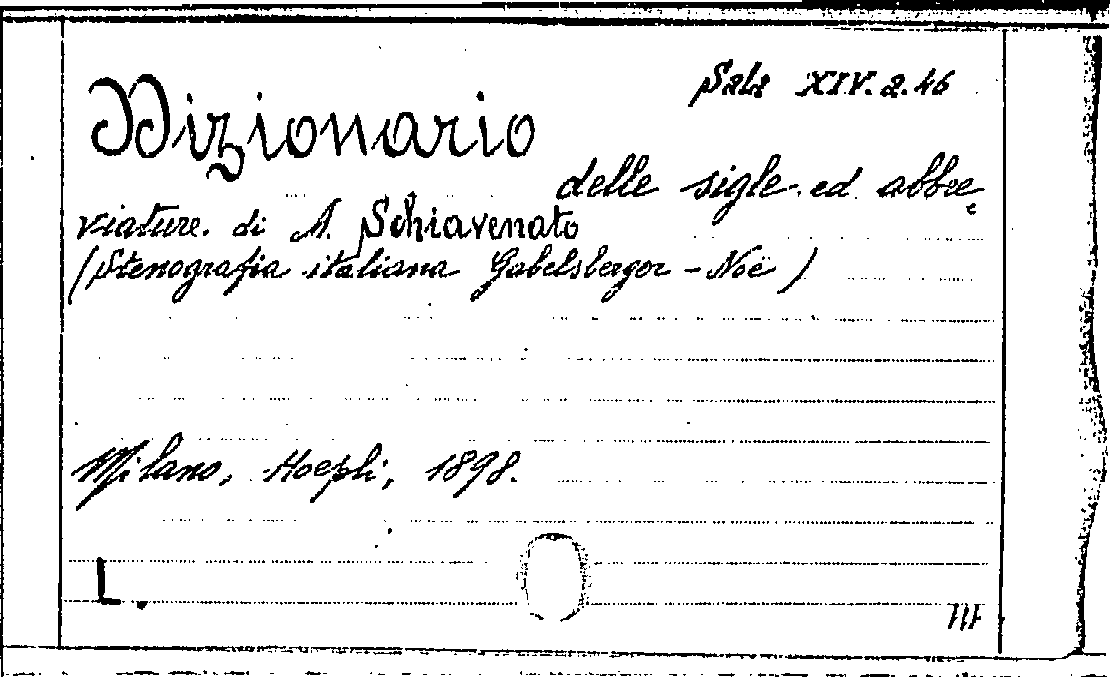 Sala XIV. 2. 46
Dizionario
delle sigle ed abbre
viature. di A. Schiavenato
(Stenografia italiana Gabelsberger - Noë)
Milano, Hoepli, 1898.
L.